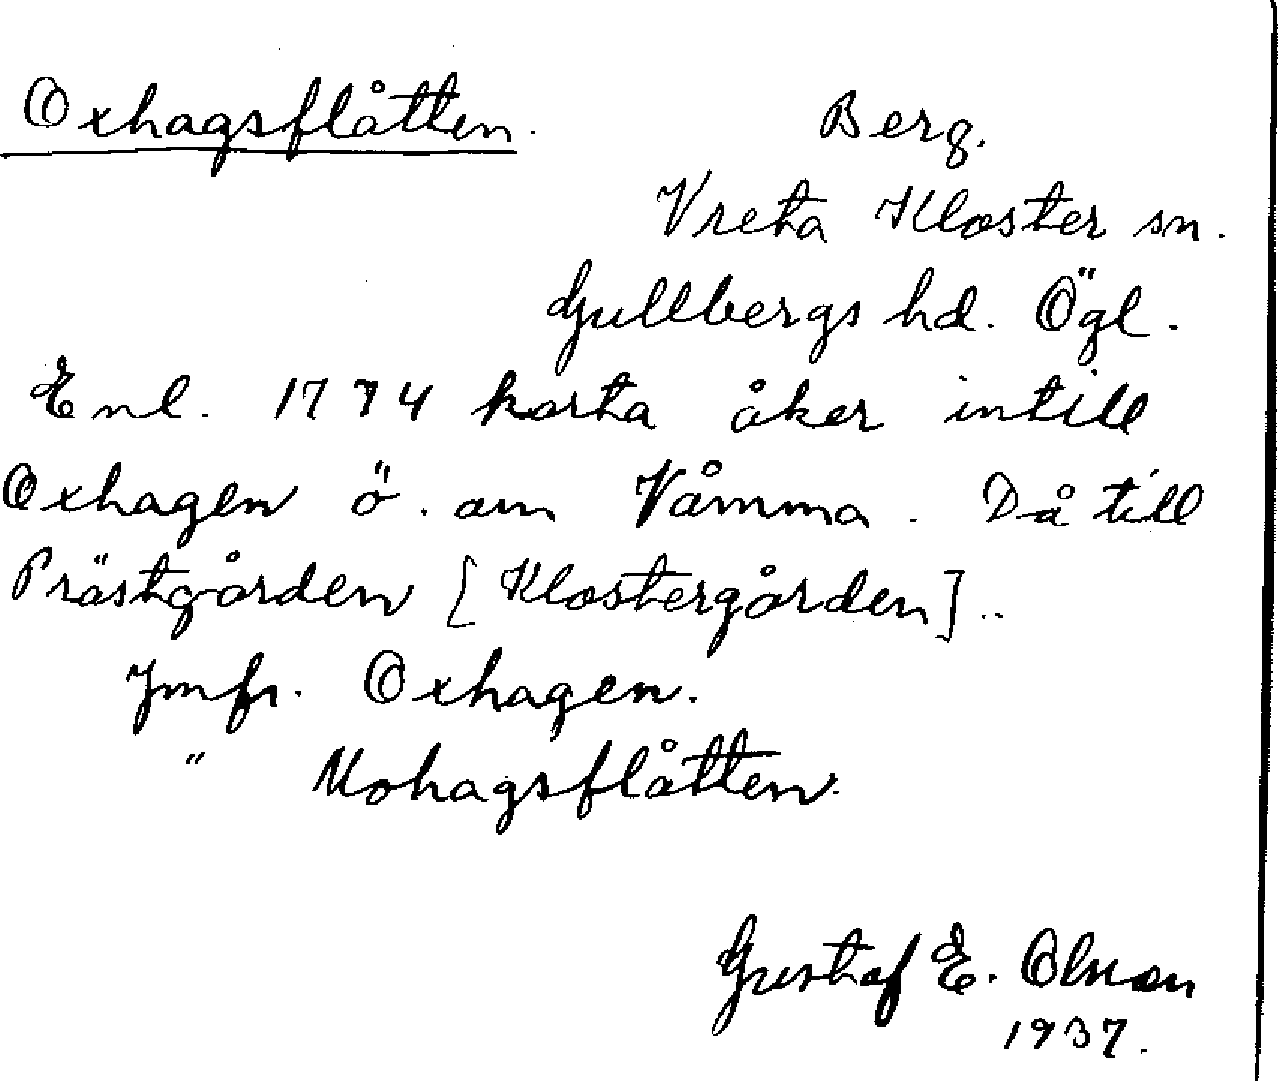 Oxhagsflåtten.
Berg.
Vreta Kloster sn.
Gullbergs hd. Ögl.
Enl. 1774 karta åker intill
Oxhagen ö. om Våmma. Då till
Prästgården [Klostergården]..
Jmfr. Oxhagen.
" Mohagsflåtten.
Gustaf E. Olsson
1937.